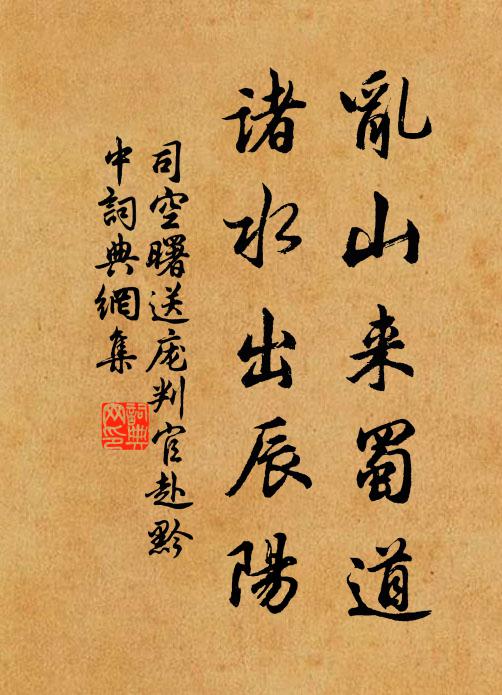 亂山来蜀道
諸水出辰陽
司空曙送庞判官赴黔
中詞典網集
詞典網印